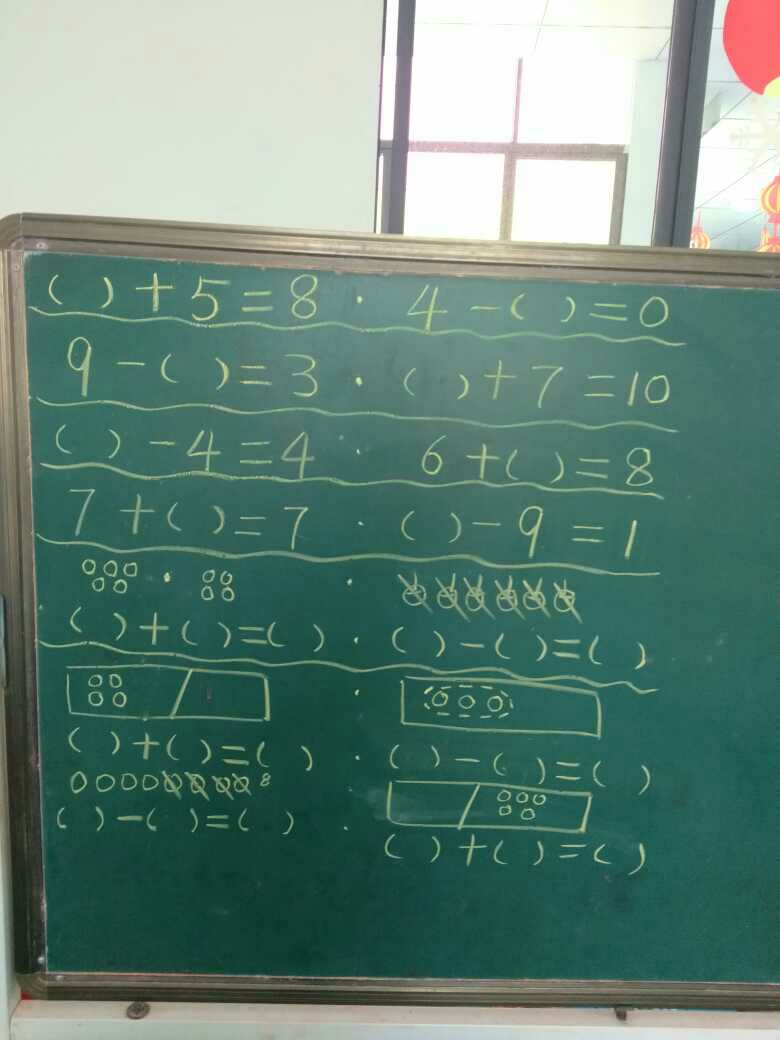 ( ) + 5 = 8 · 4 - ( ) = 0
9 - ( ) = 3 · ( ) + 7 = 10
( ) - 4 = 4 · 6 + ( ) = 8
7 + ( ) = 7 · ( ) - 9 = 1
( ) + ( ) = ( ) · ( ) - ( ) = ( )
( ) + ( ) = ( ) · ( ) - ( ) = ( )
8
( ) - ( ) = ( ) · ( ) + ( ) = ( )